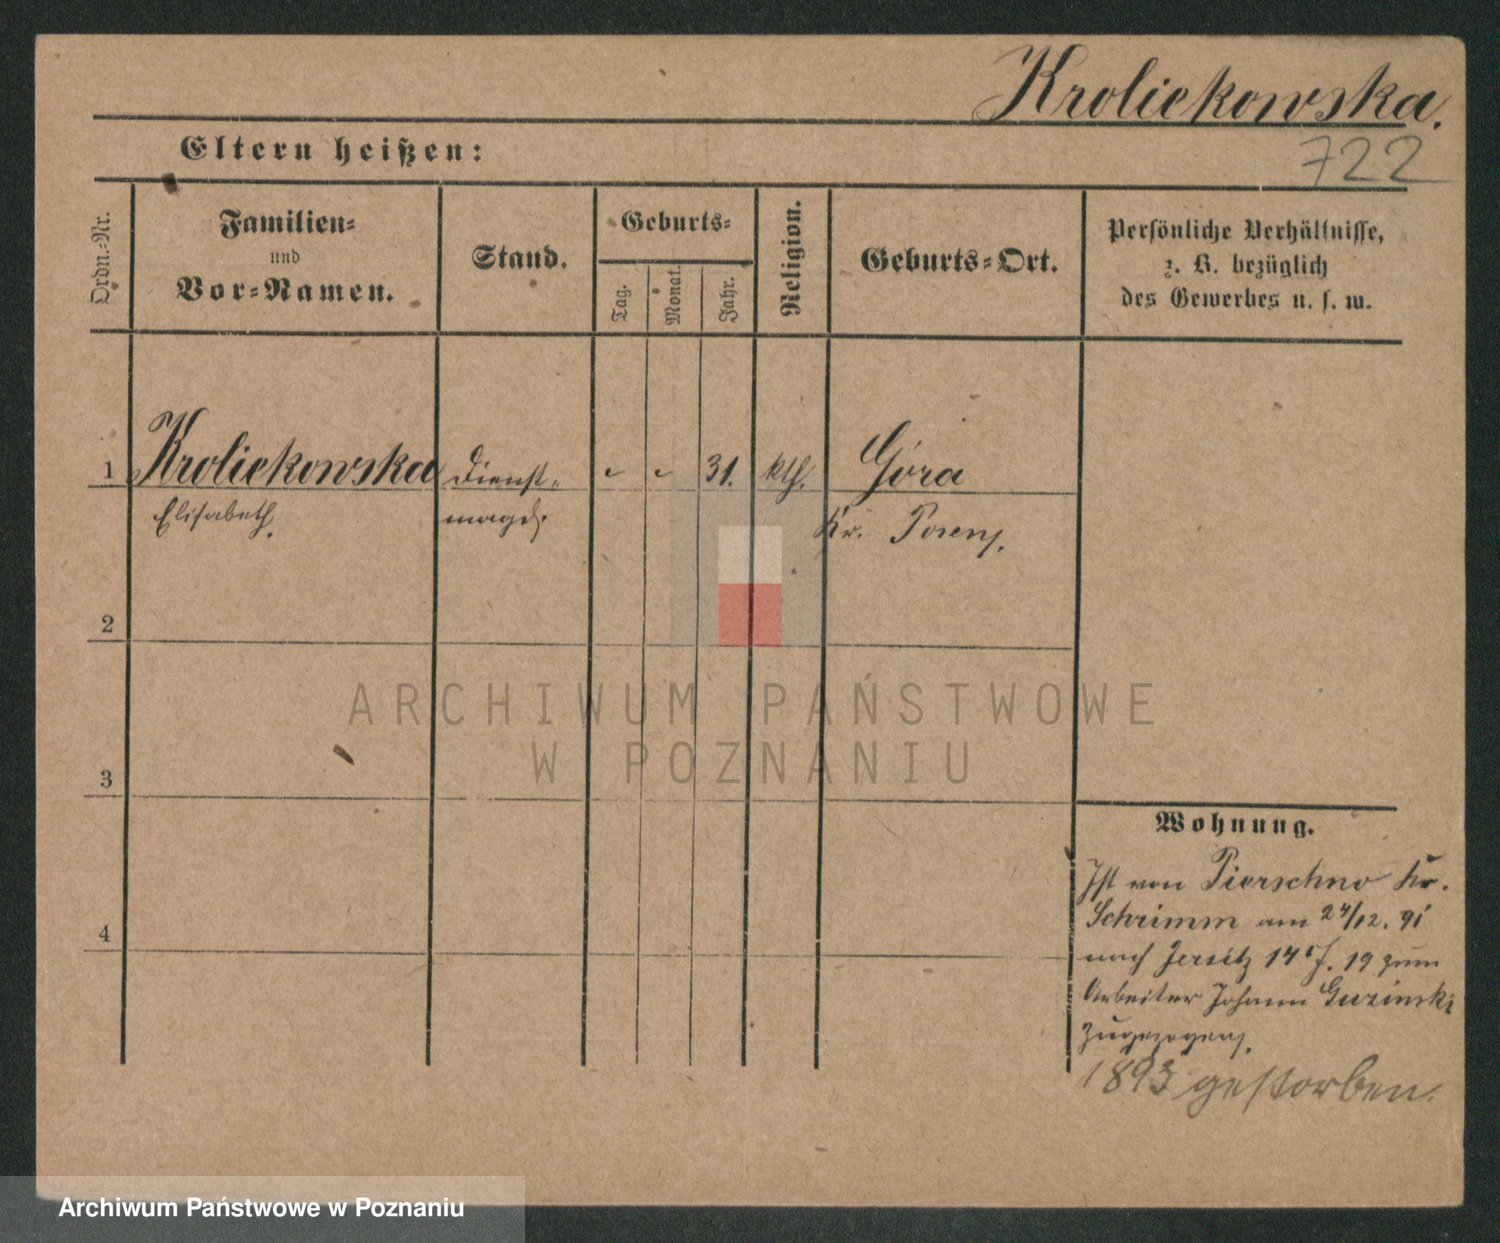 Kroliekowska.
722
Eltern heißen:
Ordn.-Nr.
Familien-
und
Vor-Namen.
Stand.
Geburts-
Tag.
Monat.
Jahr.
Religion.
Geburts-Ort.
Persönliche Verhältnisse,
z. B. bezüglich
des Gewerbes u. s. w.
1 Kroliekowska Dienst- 31. kth. Góra
Elisabeth. magd. Kr. Posen.
2
3
4
ARCHIWUM PAŃSTWOWE
W POZNANIU
Wohnung.
Ist von Pierschno Kr.
Schrimm am 24/12. 91
nach Jersitz 19 zum
Arbeiter Johann Guzinski
zugezogen.
1893 gestorben.
Archiwum Państwowe w Poznaniu